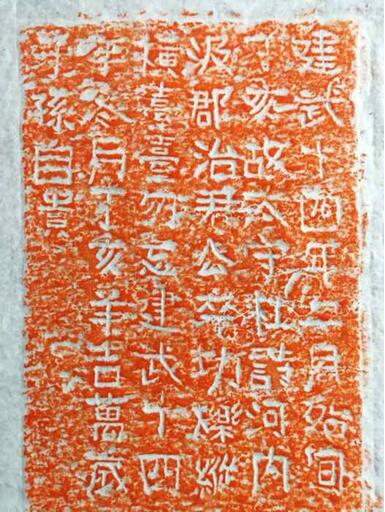 建武十四年二月
丁亥故太守杜詩河内
汲郡治君公功櫟縱
橫臺勿忘建武十四
年冬月丁亥辛吉萬歲
子孫自貴